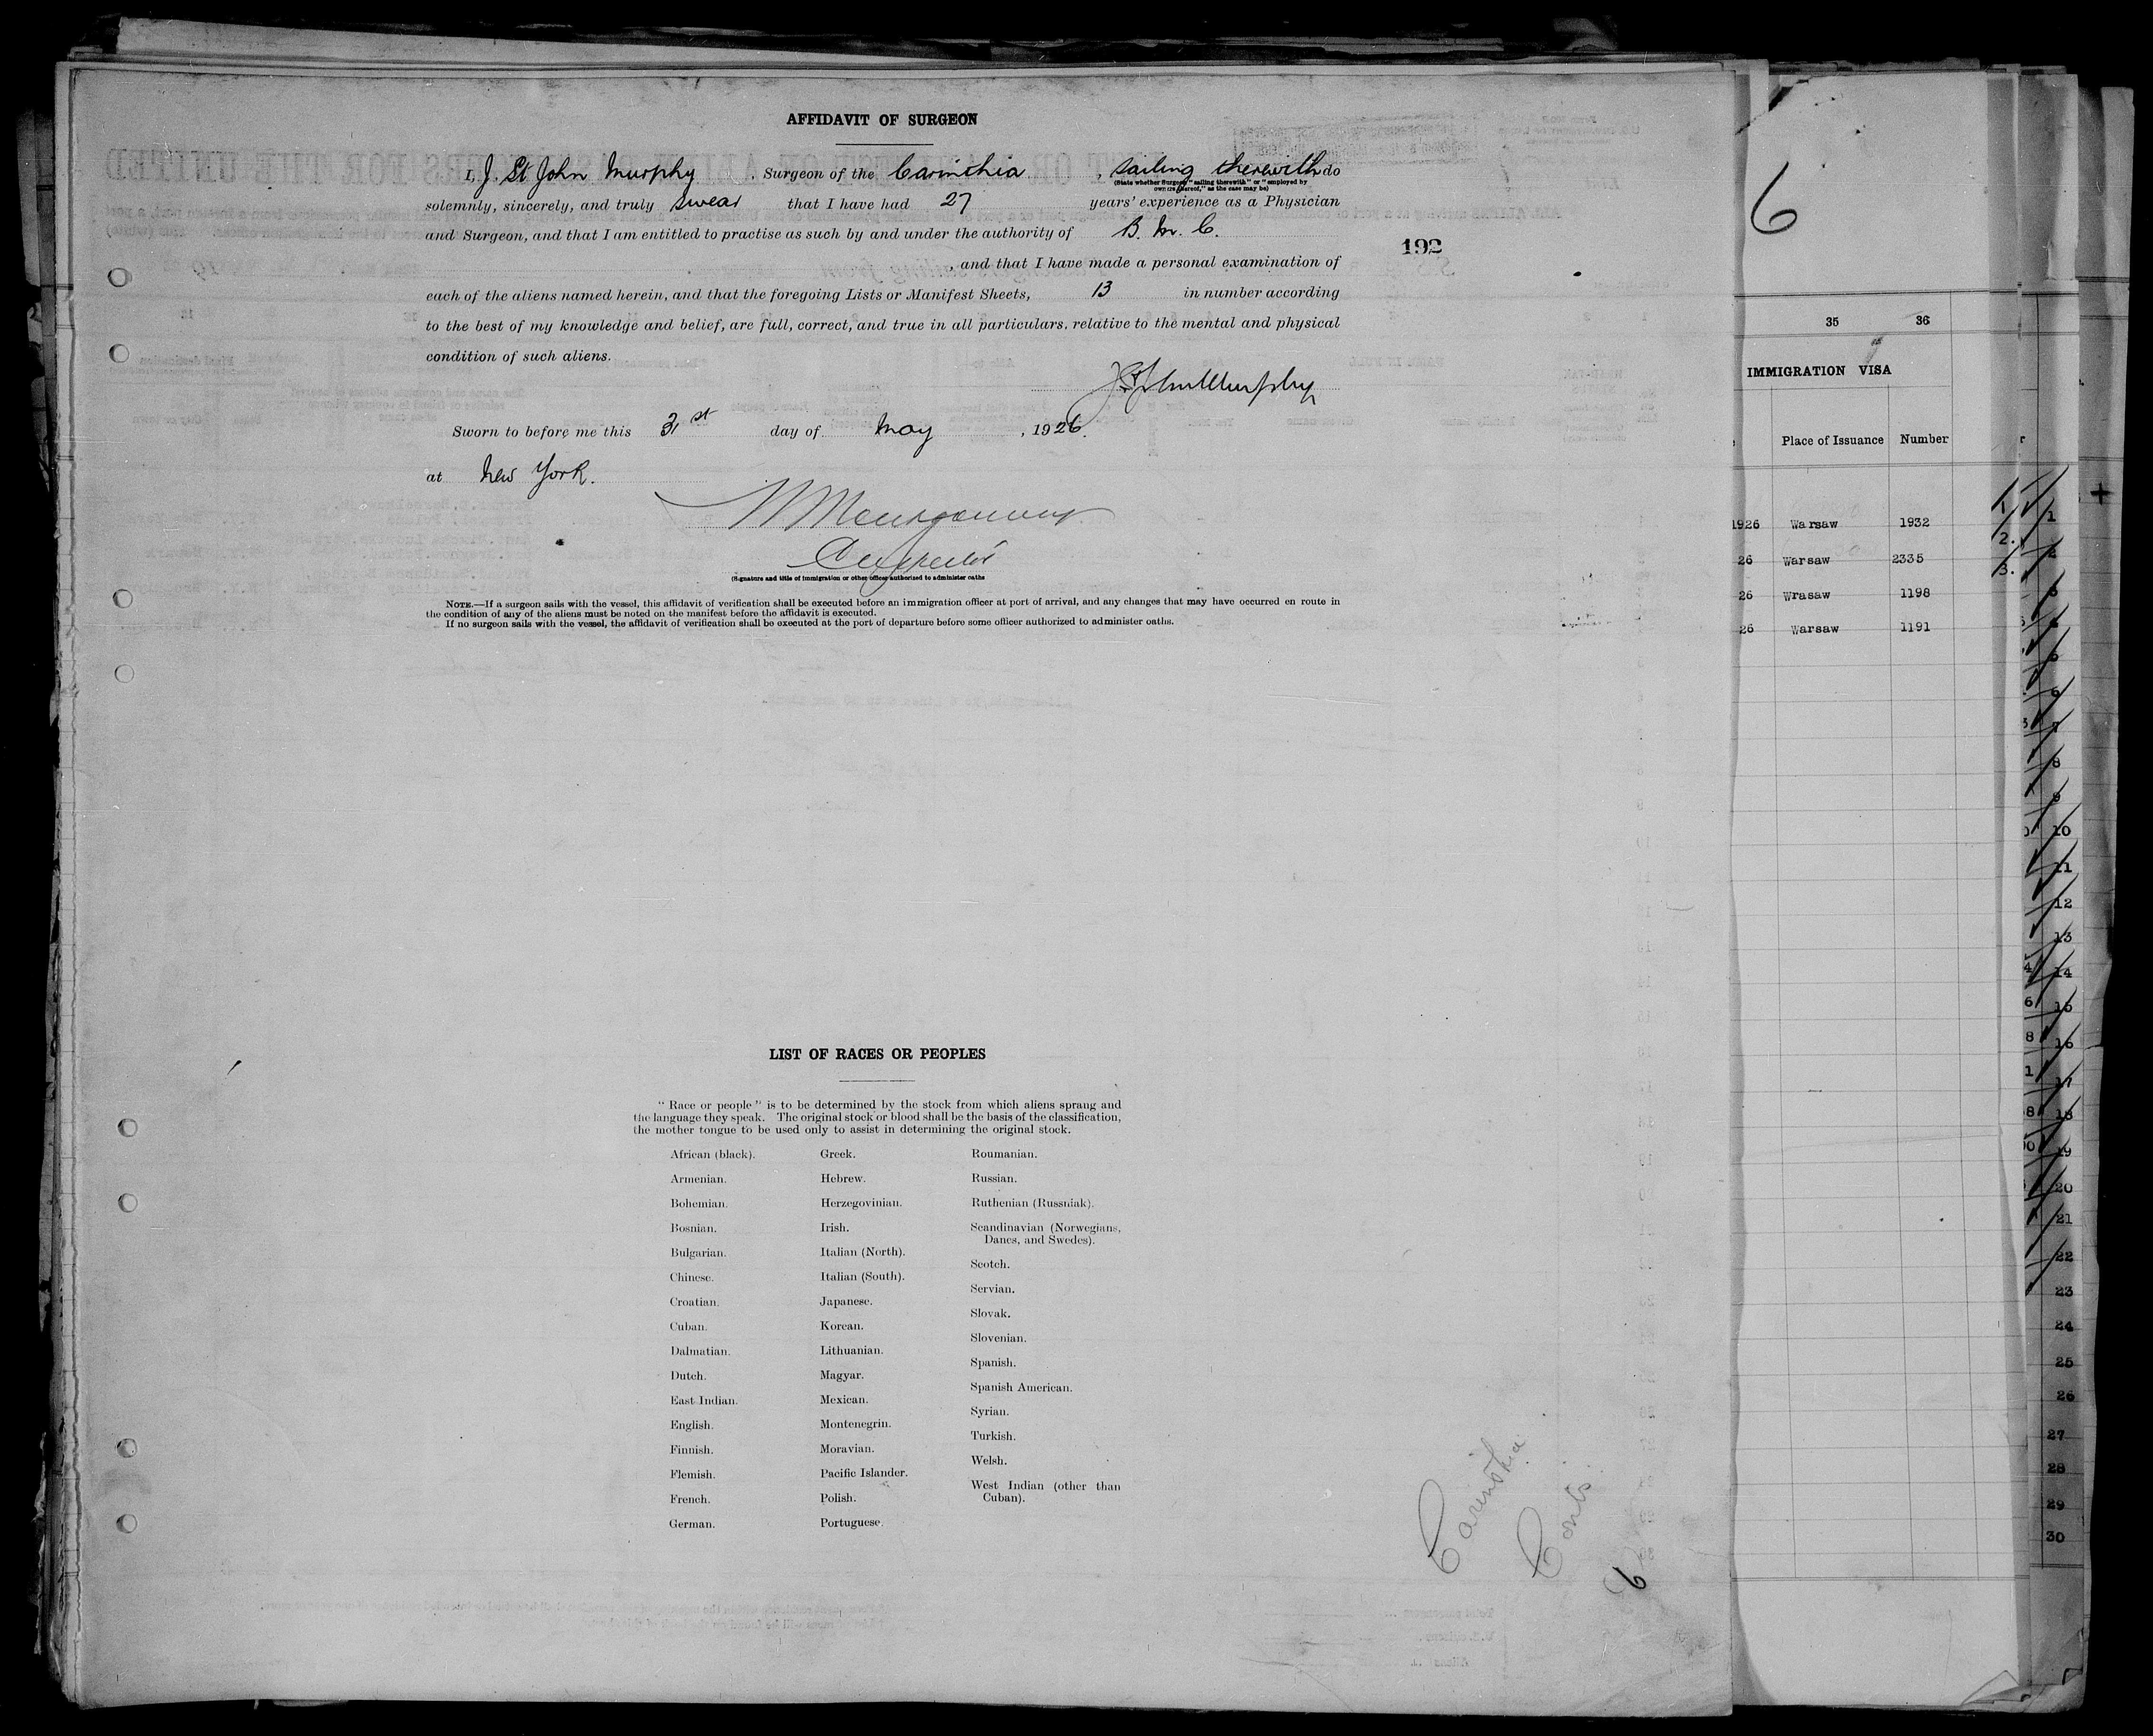 AFFIDAVIT OF SURGEON
I, J. St John Murphy, Surgeon of the Carinthia, sailing therewith do
(State whether Surgeon "sailing therewith" or "employed by
owners thereof," as the case may be)
solemnly, sincerely, and truly swear that I have had 27 years' experience as a Physician
and Surgeon, and that I am entitled to practise as such by and under the authority of B. M. C.
, and that I have made a personal examination of
192
each of the aliens named herein, and that the foregoing Lists or Manifest Sheets, 13 in number according
to the best of my knowledge and belief, are full, correct, and true in all particulars, relative to the mental and physical
condition of such aliens.
J St John Murphy
Sworn to before me this 31st day of May, 1926.
at New York.
Montgomery
Inspector
(Signature and title of immigration or other officer authorized to administer oaths
NOTE.—If a surgeon sails with the vessel, this affidavit of verification shall be executed before an immigration officer at port of arrival, and any changes that may have occurred en route in
the condition of any of the aliens must be noted on the manifest before the affidavit is executed.
If no surgeon sails with the vessel, the affidavit of verification shall be executed at the port of departure before some officer authorized to administer oaths.
LIST OF RACES OR PEOPLES
"Race or people" is to be determined by the stock from which aliens sprang and
the language they speak. The original stock or blood shall be the basis of the classification,
the mother tongue to be used only to assist in determining the original stock.
African (black).
Armenian.
Bohemian.
Bosnian.
Bulgarian.
Chinese.
Croatian.
Cuban.
Dalmatian.
Dutch.
East Indian.
English.
Finnish.
Flemish.
French.
German.
Greek.
Hebrew.
Herzegovinian.
Irish.
Italian (North).
Italian (South).
Japanese.
Korean.
Lithuanian.
Magyar.
Mexican.
Montenegrin.
Moravian.
Pacific Islander.
Polish.
Portuguese.
Roumanian.
Russian.
Ruthenian (Russniak).
Scandinavian (Norwegians,
Danes, and Swedes).
Scotch.
Servian.
Slovak.
Slovenian.
Spanish.
Spanish American.
Syrian.
Turkish.
Welsh.
West Indian (other than
Cuban).
Carinthia
6
6
35 36
IMMIGRATION VISA
Place of Issuance Number
1926 Warsaw 1932
26 Warsaw 2335
26 Wrasaw 1198
26 Warsaw 1191
1
2
3
4
5
6
7
8
9
10
11
12
13
14
15
16
17
18
19
20
21
22
23
24
25
26
27
28
29
30